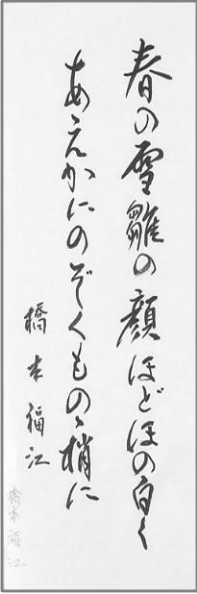 春の雪雛の顔ほどほの白く
あえかにのぞくものゝ梢に
橋本福江
橋本福江